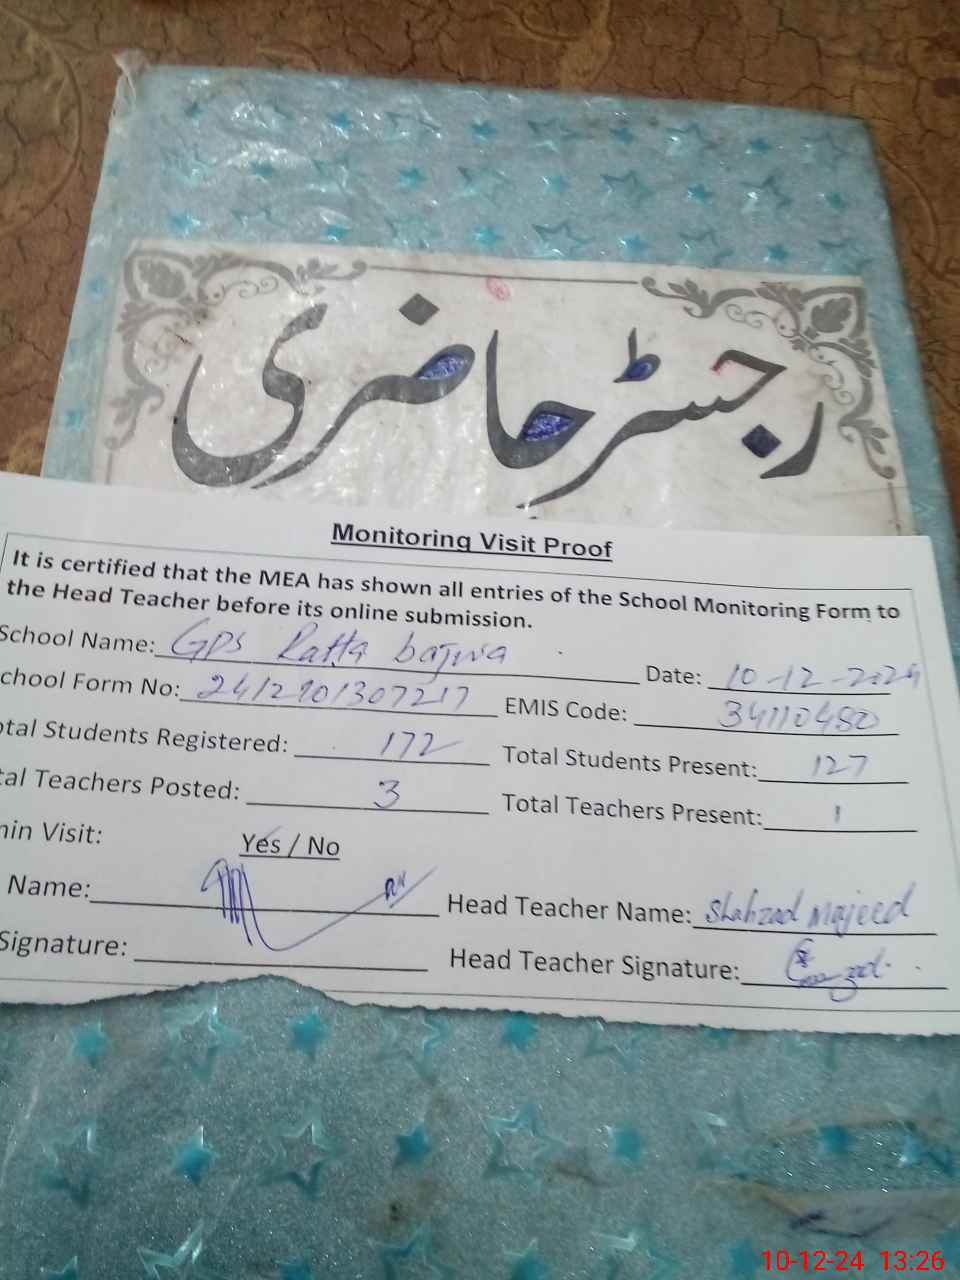 رجسٹر حاضری
Monitoring Visit Proof
It is certified that the MEA has shown all entries of the School Monitoring Form to
the Head Teacher before its online submission.
School Name: GPS Ratta bajwa Date: 10-12-2024
chool Form No: 2412101307217 EMIS Code: 34110480
otal Students Registered: 172 Total Students Present: 127
tal Teachers Posted: 3 Total Teachers Present: 1
min Visit: Yes / No
Name: Head Teacher Name: Shahzad Majeed
Signature: Head Teacher Signature:
10-12-24 13:26